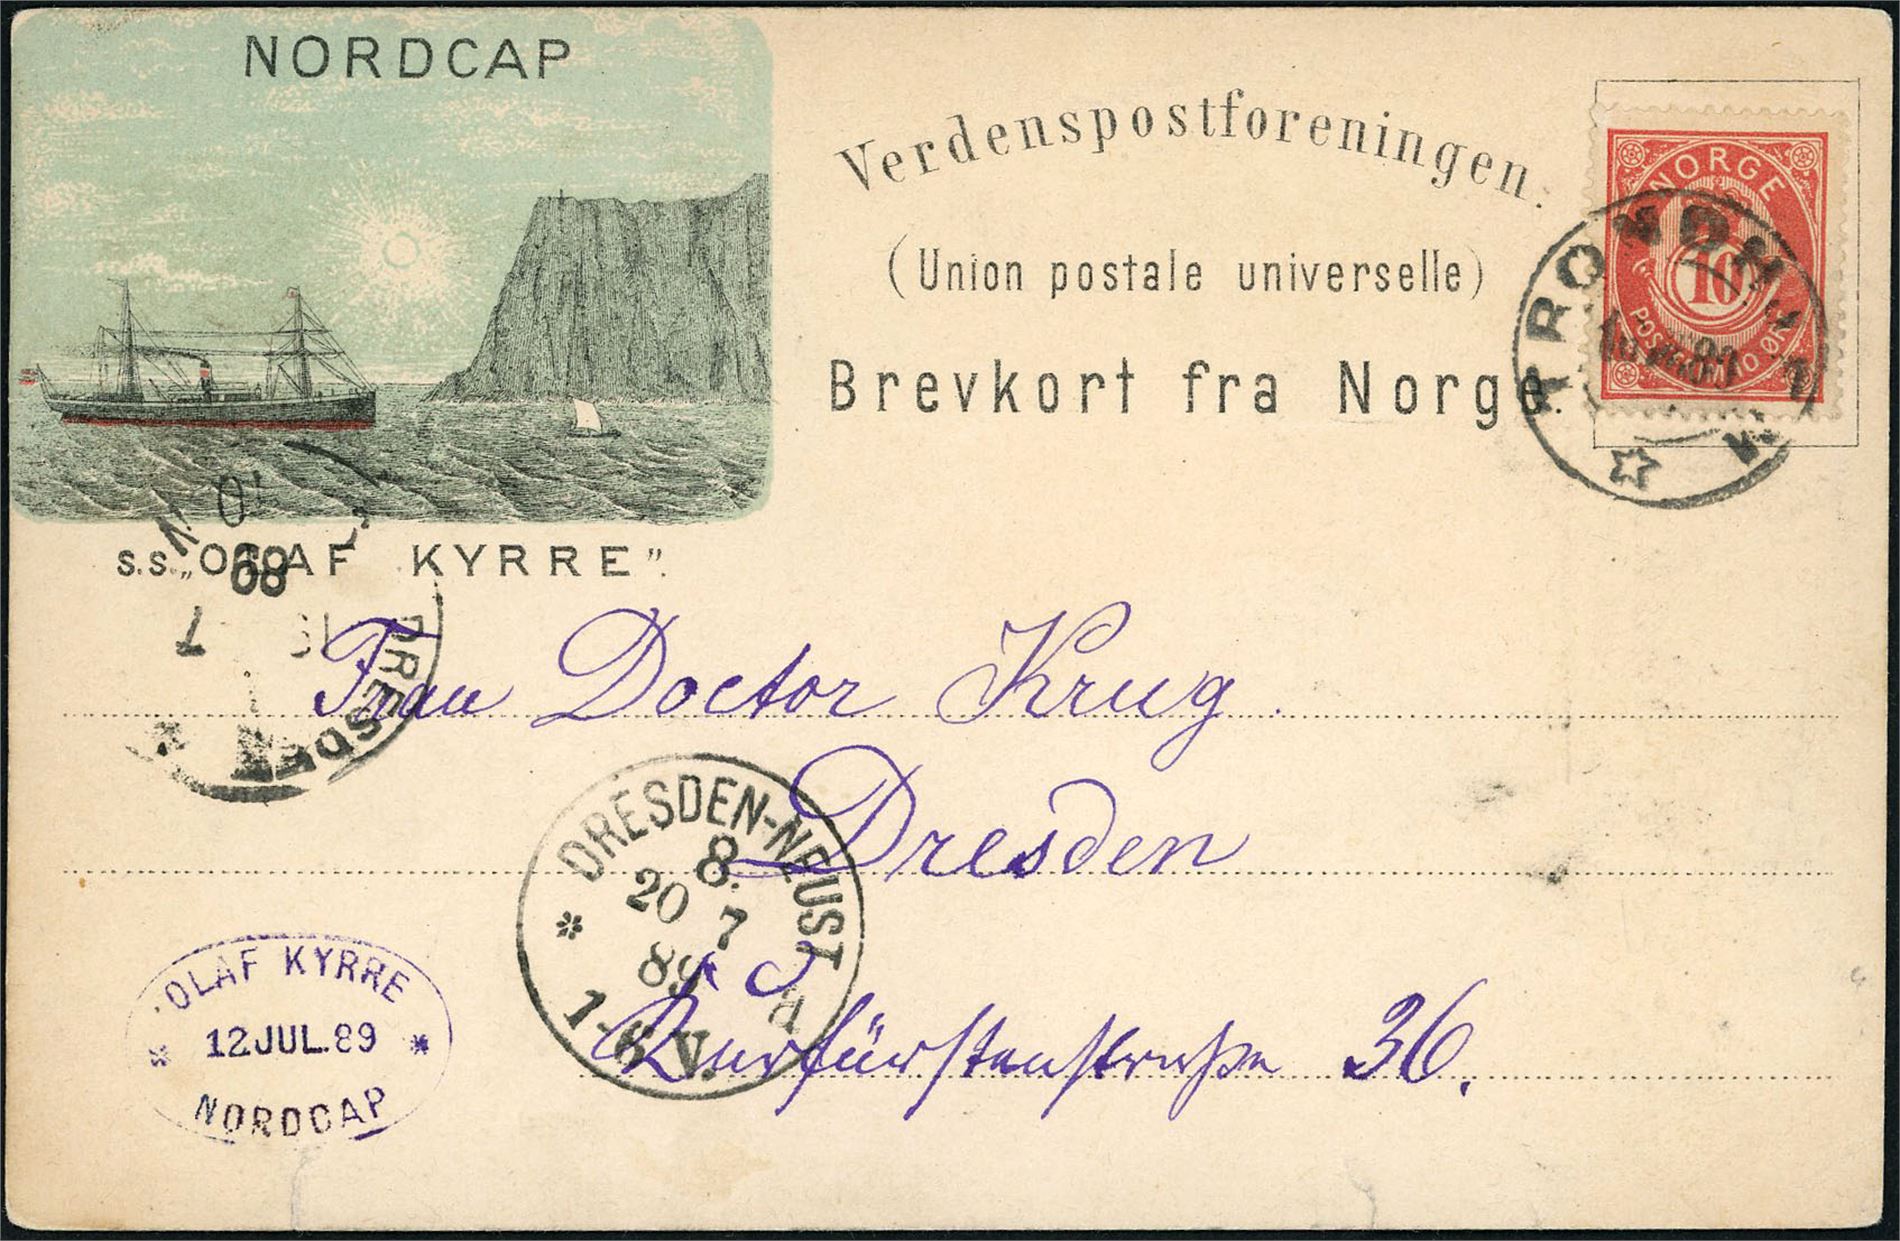 NORDCAP
Verdenspostforeningen.
(Union postale universelle)
Brevkort fra Norge.
NORGE
10
POSTFRIM 10 ØRE
S.S. „OLAF KYRRE”.
89
7
DRESDEN
Frau Doctor Krug
Dresden
Kurfürstenstraße 36.
DRESDEN-NEUST
8.
20 7
89
1-6 V.
OLAF KYRRE
12 JUL. 89
NORDCAP